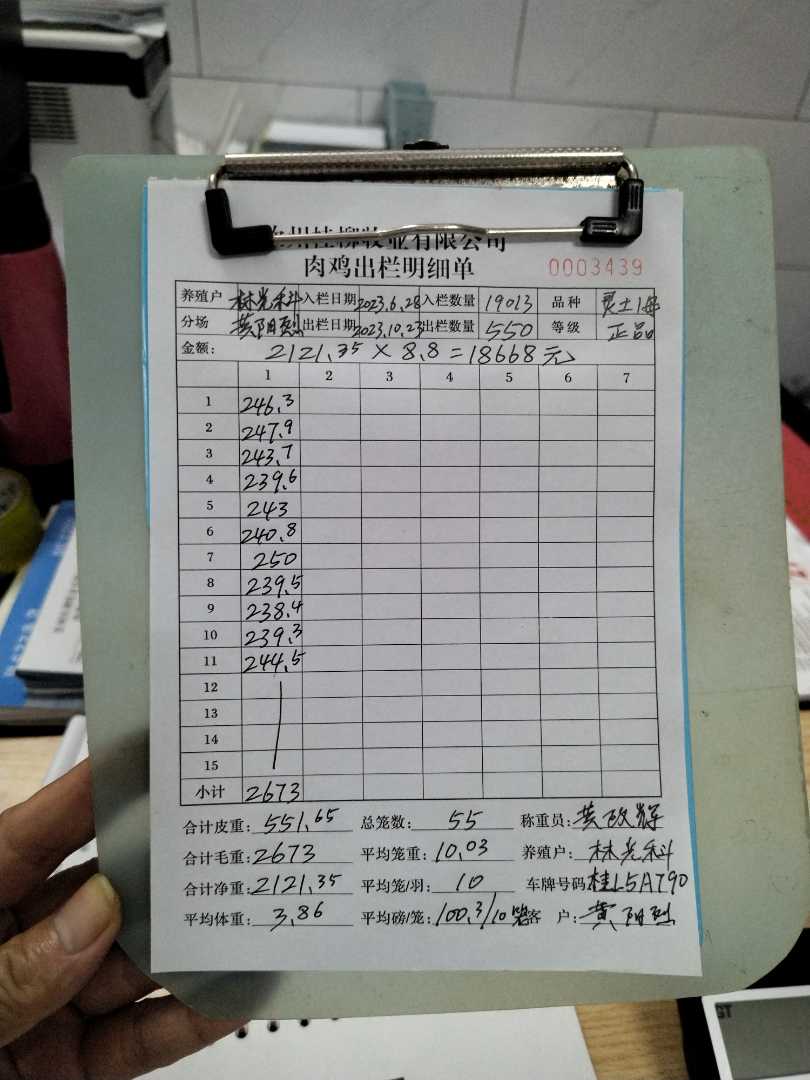 桂柳牧业有限公司
肉鸡出栏明细单 0003439
养殖户 林光科 入栏日期 2023.6.28 入栏数量 19013 品种 灵土1母
分场 黄阳烈 出栏日期 2023.10.23 出栏数量 550 等级 正品
金额: 2121.35 × 8.8 = 18668元
1 2 3 4 5 6 7
1 246.3
2 247.9
3 243.7
4 239.6
5 243
6 240.8
7 250
8 239.5
9 238.4
10 239.3
11 244.5
12
13
14
15
小计 2673
合计皮重: 551.65 总笼数: 55 称重员: 黄政辉
合计毛重: 2673 平均笼重: 10.03 养殖户: 林光科
合计净重: 2121.35 平均笼/羽: 10 车牌号码 桂L5A790
平均体重: 3.86 平均磅/笼: 100.3/10 客 户: 黄阳烈